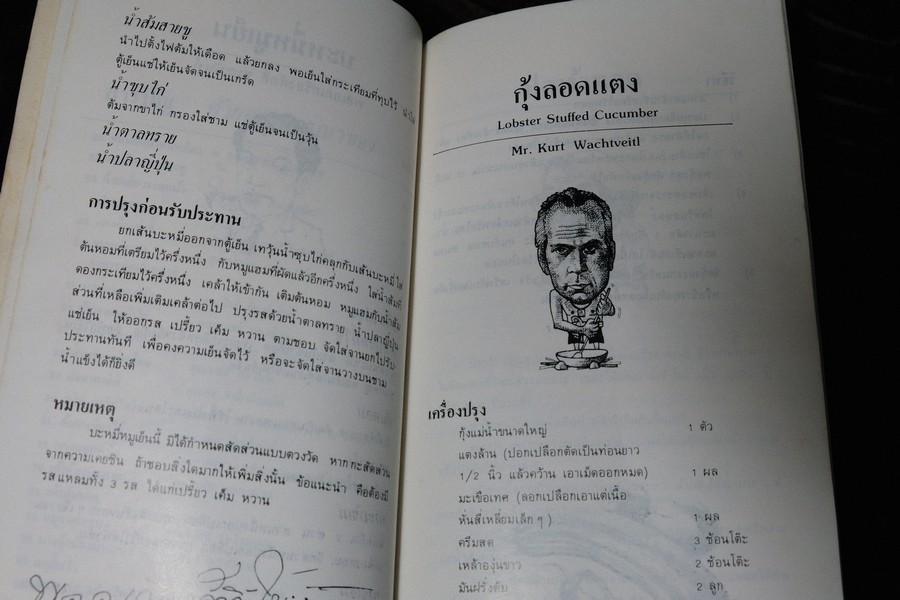 น้ำส้มสายชู
นำไปตั้งไฟต้มให้เดือด แล้วยกลง พอเย็นใส่กระเทียมที่ทุบไว้
ตู้เย็นแช่ให้เย็นจัดจนเป็นเกร็ด
น้ำซุบไก่
ต้มจากขาไก่ กรองใส่ชาม แช่ตู้เย็นจนเป็นวุ้น
น้ำตาลทราย
น้ำปลาญี่ปุ่น
การปรุงก่อนรับประทาน
ยกเส้นบะหมี่ออกจากตู้เย็น เทวุ้นน้ำซุบไก่คลุกกับเส้นบะหมี่ ใส่
ต้นหอมที่เตรียมไว้ครึ่งหนึ่ง กับหมูแฮมที่ผัดแล้วอีกครึ่งหนึ่ง ใส่น้ำส้มที่
ดองกระเทียมไว้ครึ่งหนึ่ง เคล้าให้เข้ากัน เติมต้นหอม หมูแฮมกับน้ำส้ม
ส่วนที่เหลือเพิ่มเติมเคล้าต่อไป ปรุงรสด้วยน้ำตาลทราย น้ำปลาญี่ปุ่น
แช่เย็น ให้ออกรส เปรี้ยว เค็ม หวาน ตามชอบ จัดใส่จานยกไปรับ
ประทานทันที เพื่อคงความเย็นจัดไว้ หรือจะจัดใส่จานวางบนชาม
น้ำแข็งได้ก็ยิ่งดี
หมายเหตุ
บะหมี่หมูเย็นนี้ มิได้กำหนดสัดส่วนแบบตวงวัด หากกะสัดส่วน
จากความเคยชิน ถ้าชอบสิ่งใดมากให้เพิ่มสิ่งนั้น ข้อแนะนำ คือต้องมี
รสแหลมทั้ง 3 รส ได้แก่เปรี้ยว เค็ม หวาน
กุ้งลอดแตง
Lobster Stuffed Cucumber
Mr. Kurt Wachtveitl
เครื่องปรุง
กุ้งแม่น้ำขนาดใหญ่ 1 ตัว
แตงล้าน (ปอกเปลือกตัดเป็นท่อนยาว
1/2 นิ้ว แล้วคว้าน เอาเม็ดออกหมด) 1 ผล
มะเขือเทศ (ลอกเปลือกเอาแต่เนื้อ
หั่นสี่เหลี่ยมเล็ก ๆ ) 1 ผล
ครีมสด 3 ช้อนโต๊ะ
เหล้าองุ่นขาว 2 ช้อนโต๊ะ
มันฝรั่งดับ 2 ลูก